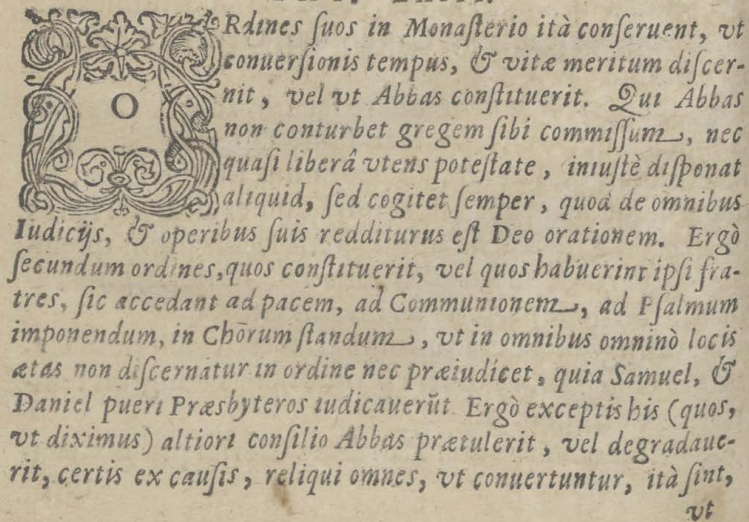 ORdines suos in Monasterio ità conseruent, vt
conuersionis tempus, & vitæ meritum discer-
nit, vel vt Abbas constituerit. Qui Abbas
non conturbet gregem sibi commissum, nec
quasi liberâ vtens potestate, iniustè disponat
aliquid, sed cogitet semper, quod de omnibus
Iudicijs, & operibus suis redditurus est Deo orationem. Ergò
secundum ordines, quos constituerit, vel quos habuerint ipsi fra-
tres, sic accedant ad pacem, ad Communionem, ad Psalmum
imponendum, in Chōrum standum, vt in omnibus omninò locis
ætas non discernatur in ordine nec præiudicet, quia Samuel, &
Daniel pueri Præsbyteros iudicauerūt Ergò exceptis his (quos,
vt diximus) altiori consilio Abbas prætulerit, vel degradaue-
rit, certis ex causis, reliqui omnes, vt conuertuntur, ità sint,
vt